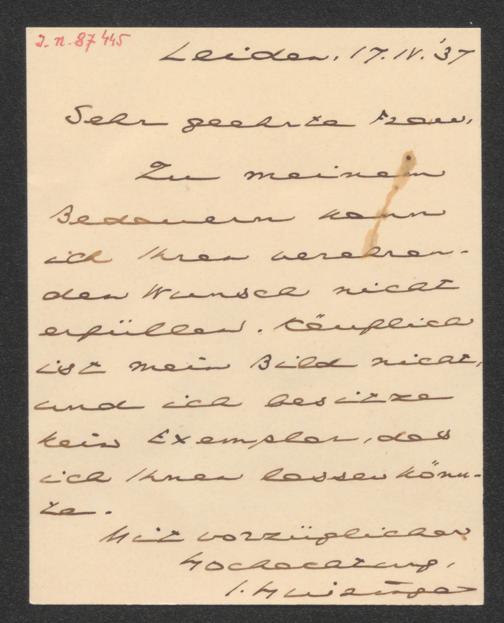 I.N. 87445
Leiden, 17.IV.'37
Sehr geehrte Frau,
Zu meinem
Bedauern kann
ich Ihren verehren-
den Wunsch nicht
erfüllen. Käuflich
ist mein Bild nicht,
und ich besitze
kein Exemplar, das
ich Ihnen lassen könn-
te.
Mit vorzüglicher
Hochachtung,
J. Huizinga